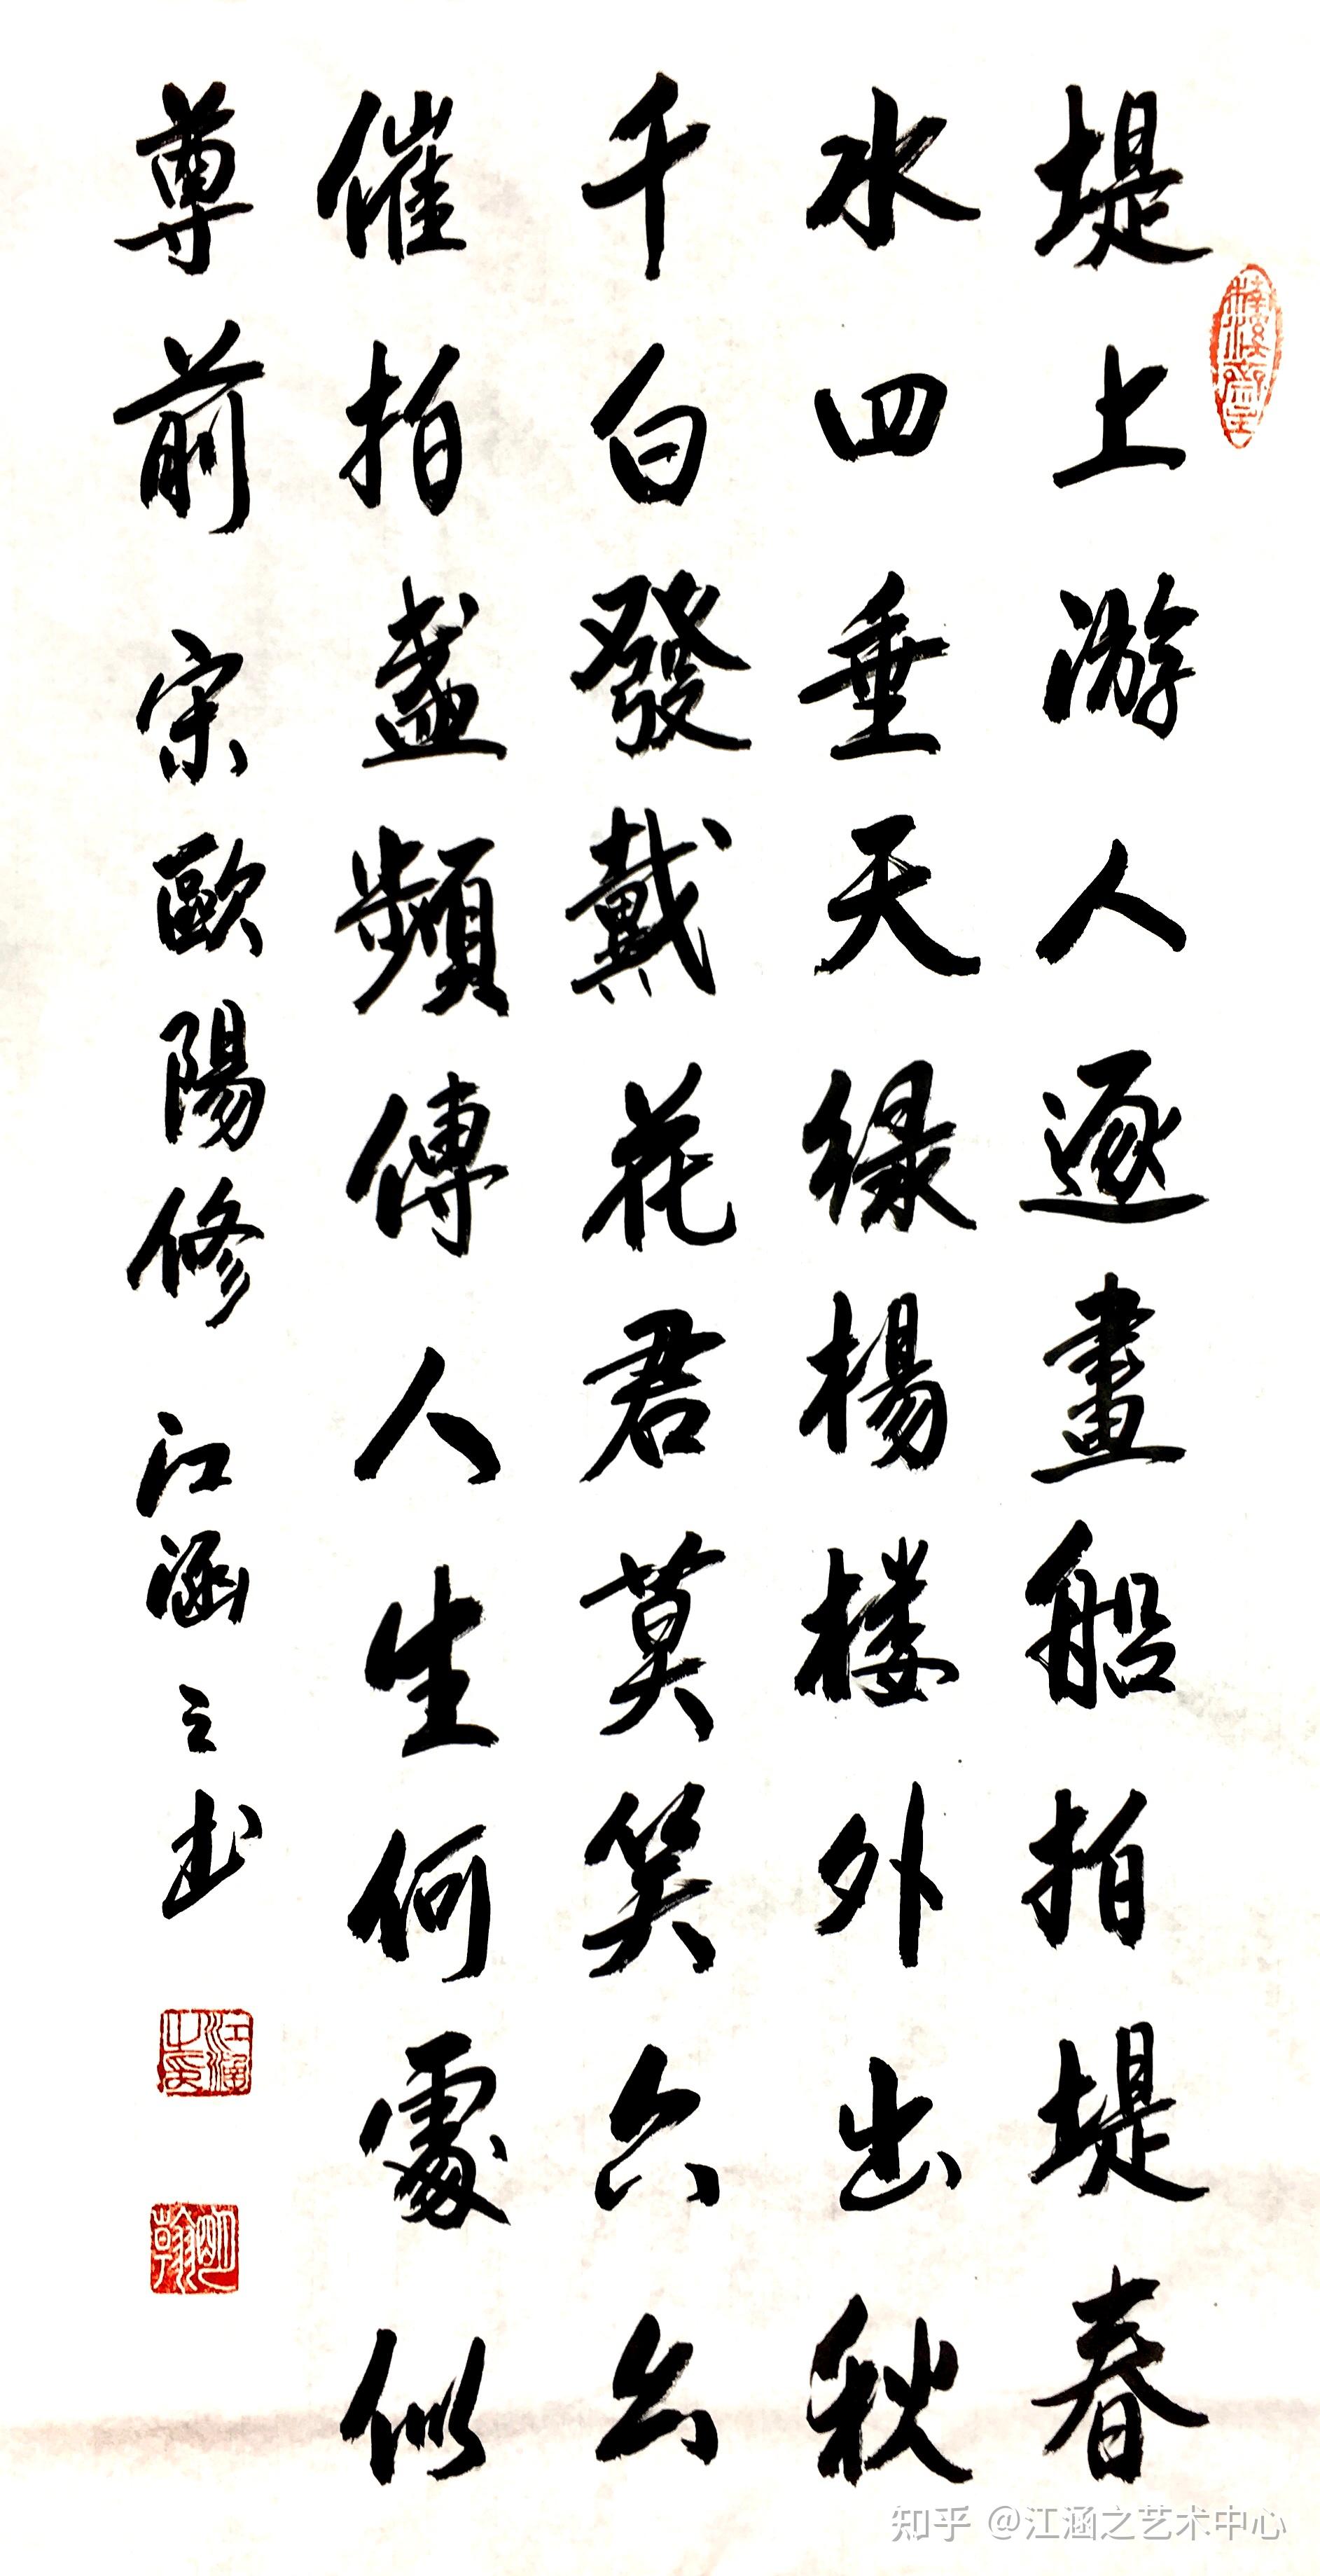 堤上游人逐畫船拍堤春
水四垂天緑楊楼外出秋
千白發戴花君莫笑六幺
催拍盞頻傳人生何處似
尊前 宋歐陽修 江涵之书
江涵之印
知乎 @江涵之艺术中心